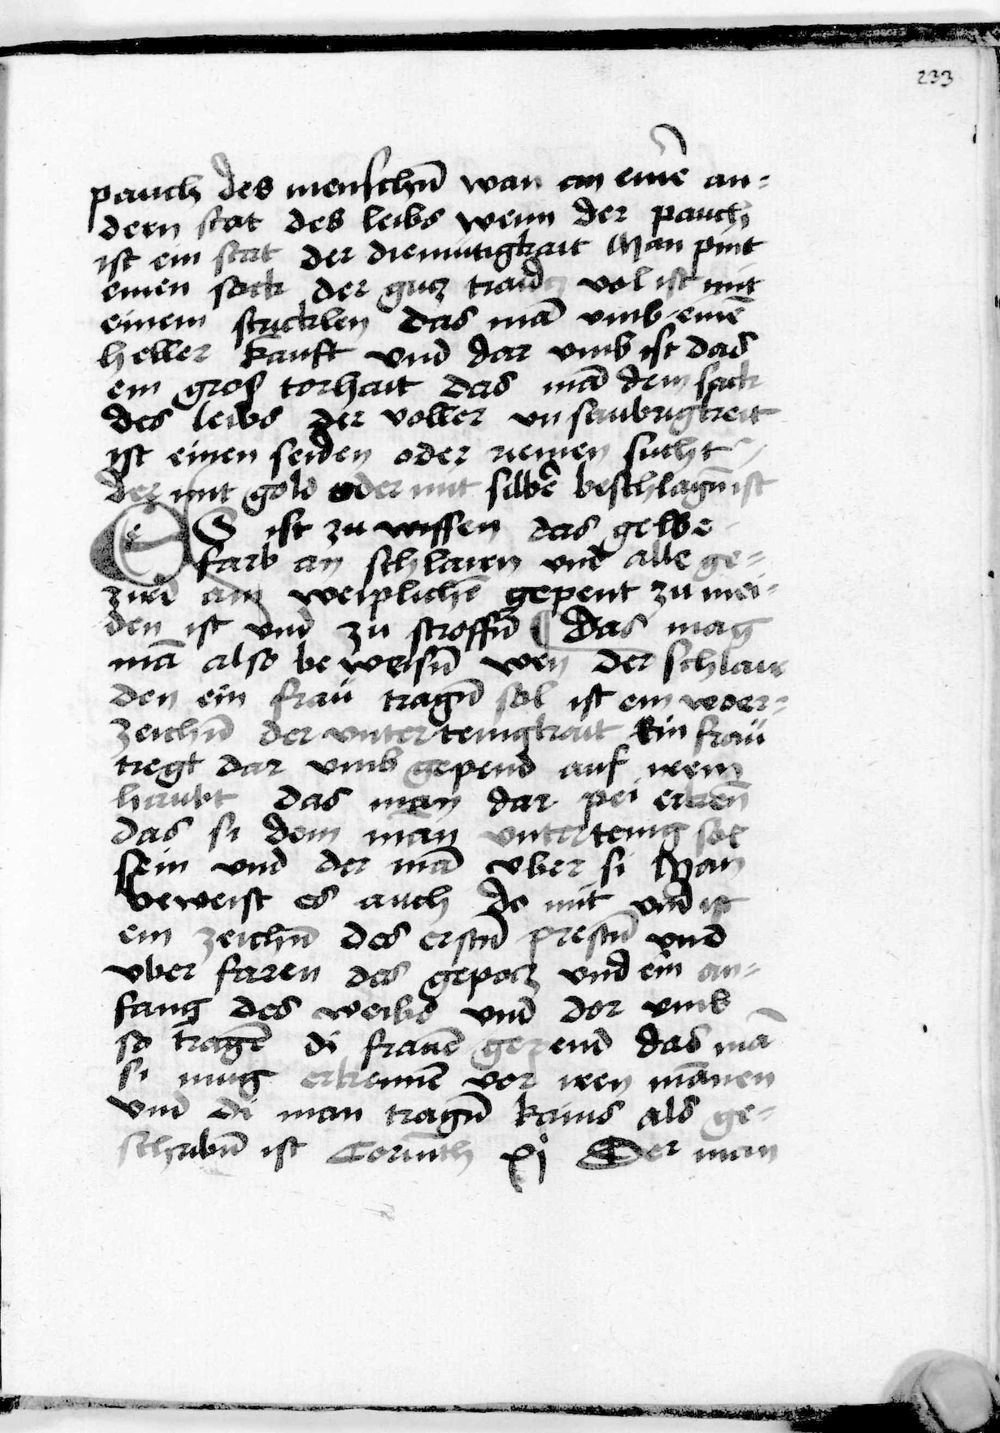 233
pauch des menschn̄ wan an einē an=
dern stat des leibs wenn der pauch
ist ein stat der diemutigkait Man pint
einen sack der gucz traidz vol ist mit
einem stricklen das mā vmb einē
heller kauft vnd dar vmb ist das
ein gros torhait das mā dem sack
des leibs der voller vnsaubrigkeit
ist einen seiden oder riemen sucht
der mit gold oder mit silbē beschlagn̄ ist
ES ist zu wissen das gelbe
farb an schlairn vnd alle ge=
zird am weiplichē gepent zu mei=
den ist vnd zu stroffn̄ ¶ Das mag
mā also beweisn̄ wen der schlair
den ein frau tragn̄ sol ist ein woer=
zeichn̄ der vntertenigkait Ein frau
tregt dar vmb gepend auf irem
haubt das man dar pei erkeñ
das si dem man vntertenig sol
sein vnd der mā vber si Man
beweist es auch do mit vnd ist
ein zeichn̄ des erstn̄ prestn̄ vnd
vber faren das gepocz vnd ein an=
fang des weibs vnd dor vmb
so tragē di frauē gepend das mā
si mug erkennē vor iren mānen
vnd di man tragn̄ kains als ge=
schribn̄ ist Corinth xj Der man